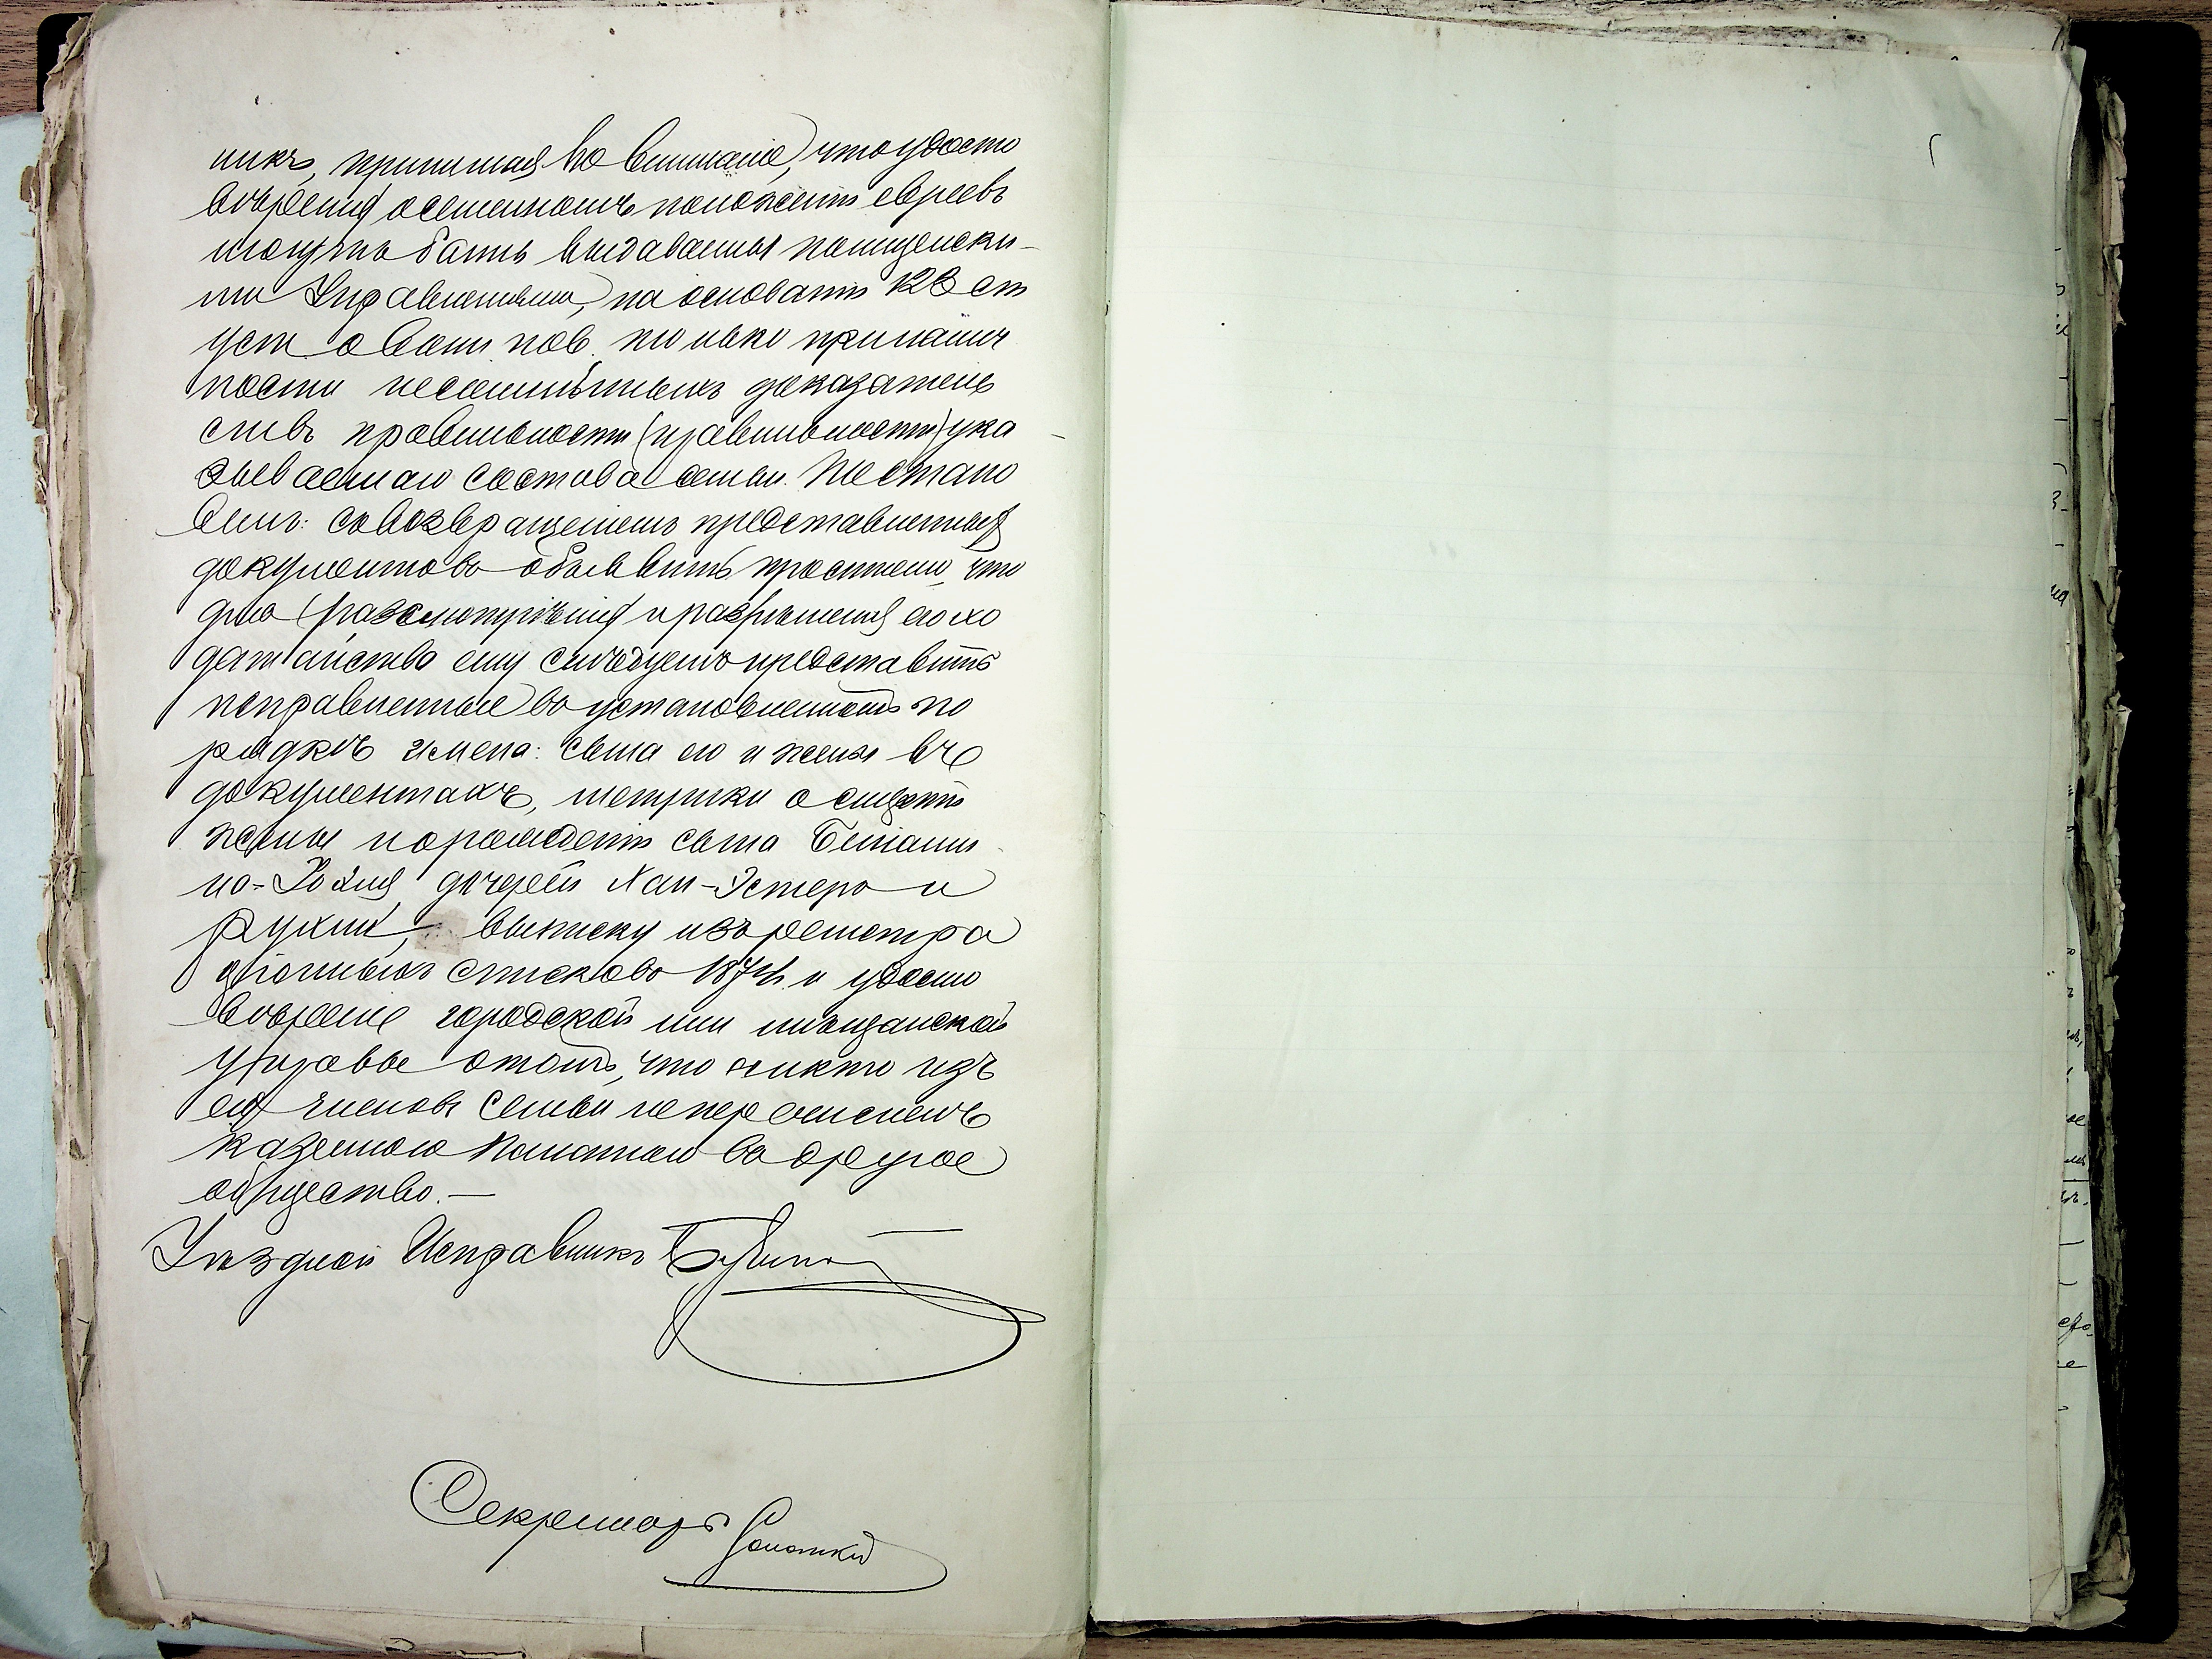 никъ, принимая во вниманіе, что удосто
вѣренія о семейномъ положеніи евреевъ
могутъ быть выдаваемы полицейски-
ми Управленіями, на основаніи 123 ст
уст о воин. пов. только при налич
ности несомнѣнныхъ доказатель
ствъ правильности (правильности) ука
зываемаго состава семьи. Постано
вилъ: съ возвращеніемъ представленныхъ
документовъ объявить просителю, что
для разсмотрѣнія и разрѣшенія его хо
датайства ему слѣдуетъ представить
исправленные въ установленномъ по
рядкѣ имена: сына его и жены въ
документахъ, метрики о смерти
жены и о рожденіи сына
дочерей Хаи-Эстеръ и
Рухли, выписку изъ регистра
ціонныхъ списковъ 1874 г. и удосто
вѣреніе городской или мѣщанской
управы о томъ, что никто изъ
его членовъ семьи не перечисленъ
казенною палатою въ другое
общество.—
Уѣздный Исправникъ
Секретарь